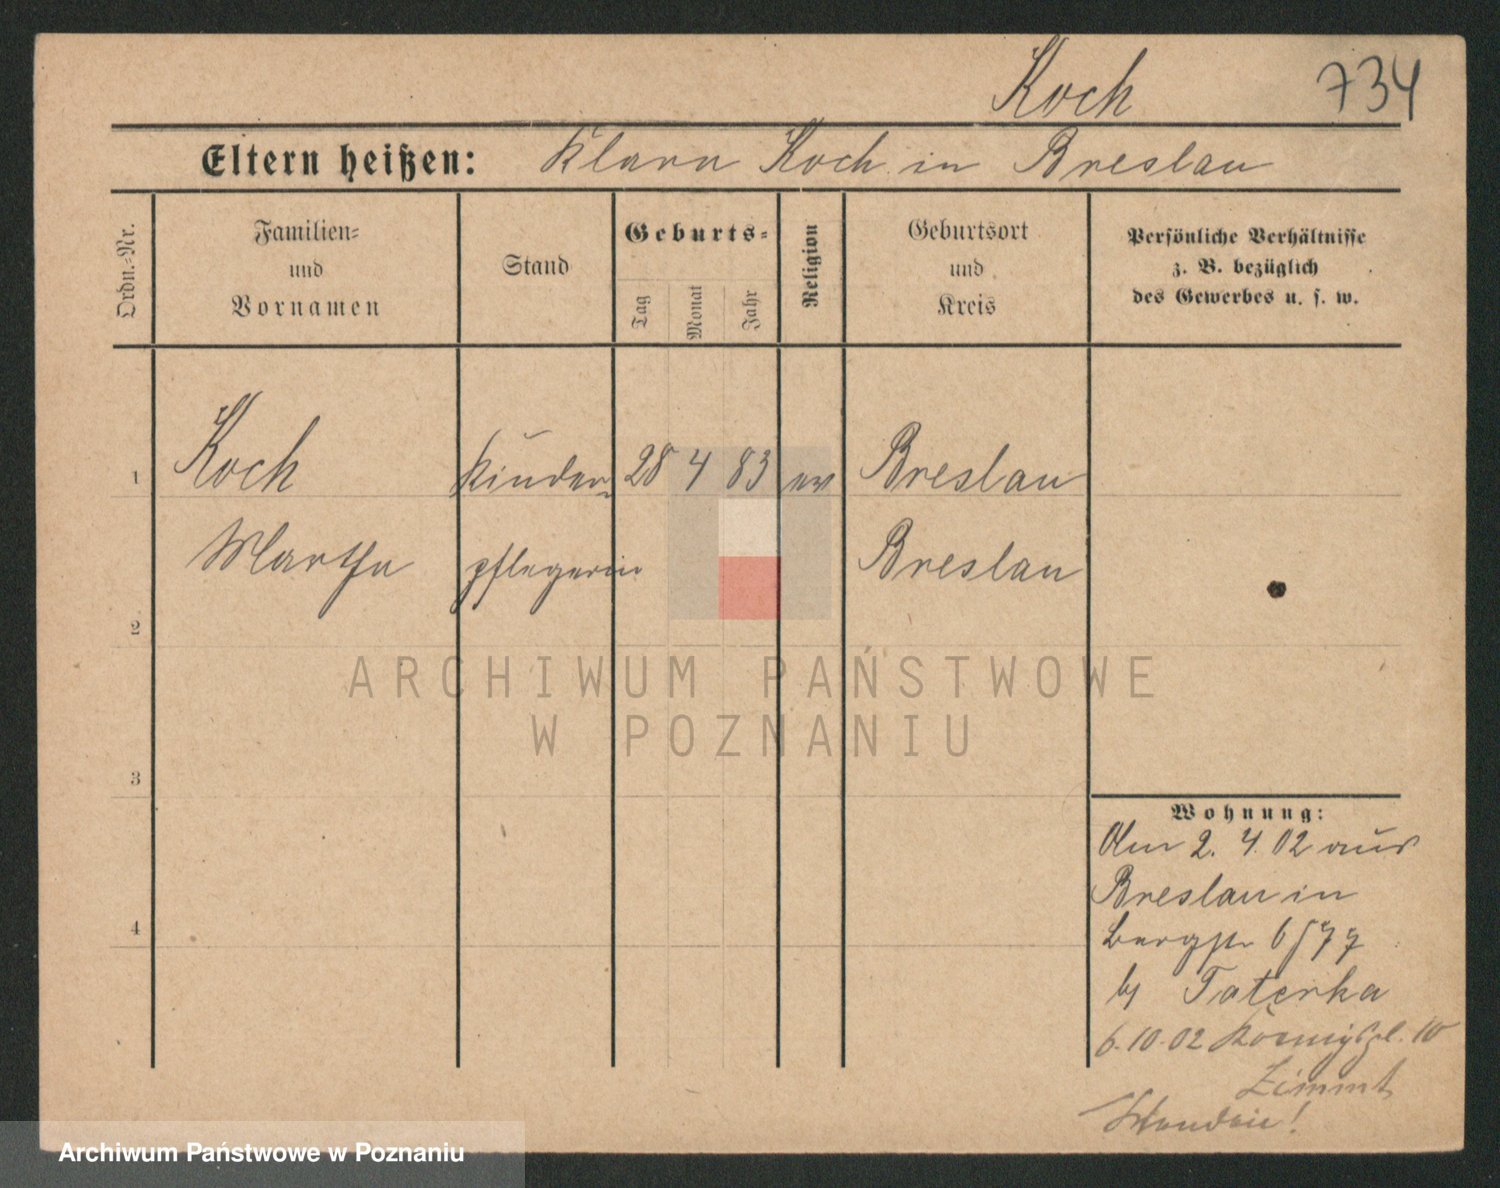 Koch 734
Eltern heißen: Klara Koch in Breslau
Ordn.-Nr.
Familien-
und
Vornamen
Stand
Geburts-
Tag
Monat
Jahr
Religion
Geburtsort
und
Kreis
Persönliche Verhältnisse
z. B. bezüglich
des Gewerbes u. s. w.
1 Koch Kinder- 28 4 83 ev Breslau
Martha pflegerin Breslau
2
ARCHIWUM PAŃSTWOWE
W POZNANIU
3
Wohnung:
Am 2. 4. 02 aus
Breslau in
4
Bergstr 6
b/ Taterka
6.10.02 Königspl. 10
Zimmt
Archiwum Państwowe w Poznaniu